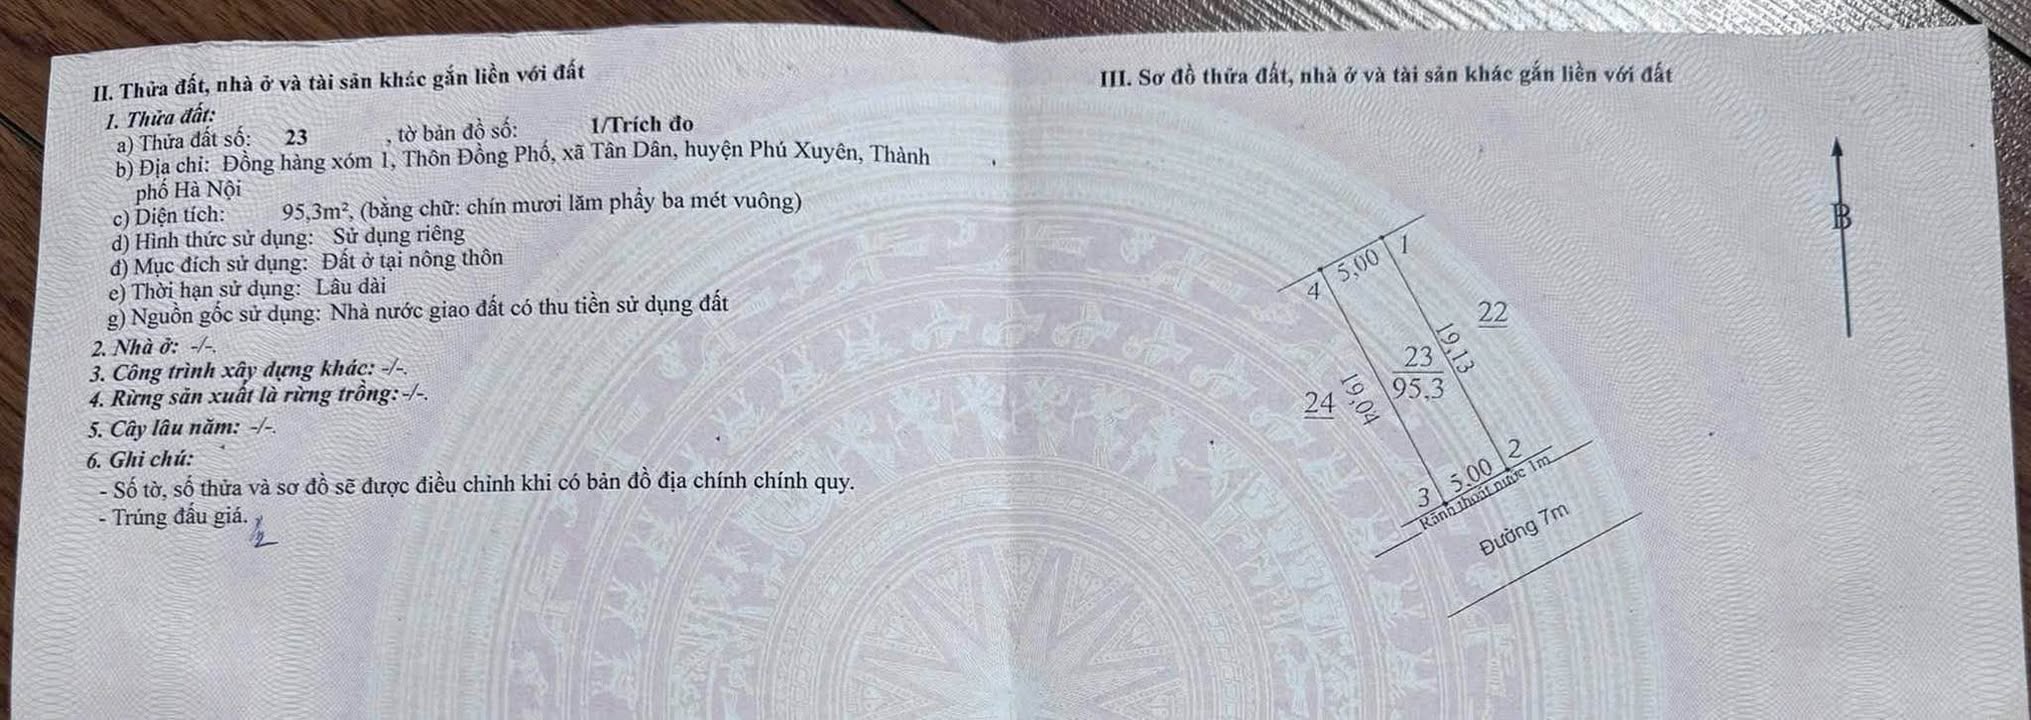 II. Thửa đất, nhà ở và tài sản khác gắn liền với đất
1. Thửa đất:
a) Thửa đất số: 23 , tờ bản đồ số: 1/Trích đo
b) Địa chỉ: Đồng hàng xóm 1, Thôn Đồng Phố, xã Tân Dân, huyện Phú Xuyên, Thành
phố Hà Nội
c) Diện tích: 95,3m², (bằng chữ: chín mươi lăm phẩy ba mét vuông)
d) Hình thức sử dụng: Sử dụng riêng
đ) Mục đích sử dụng: Đất ở tại nông thôn
e) Thời hạn sử dụng: Lâu dài
g) Nguồn gốc sử dụng: Nhà nước giao đất có thu tiền sử dụng đất
2. Nhà ở: -/-.
3. Công trình xây dựng khác: -/-.
4. Rừng sản xuất là rừng trồng: -/-.
5. Cây lâu năm: -/-.
6. Ghi chú:
- Số tờ, số thửa và sơ đồ sẽ được điều chỉnh khi có bản đồ địa chính chính quy.
- Trúng đấu giá.
III. Sơ đồ thửa đất, nhà ở và tài sản khác gắn liền với đất
B
1
5,00
4
22
19,13
23
95,3
24
19,04
2
5.00
3
Rãnh thoát nước 1m
Đường 7m